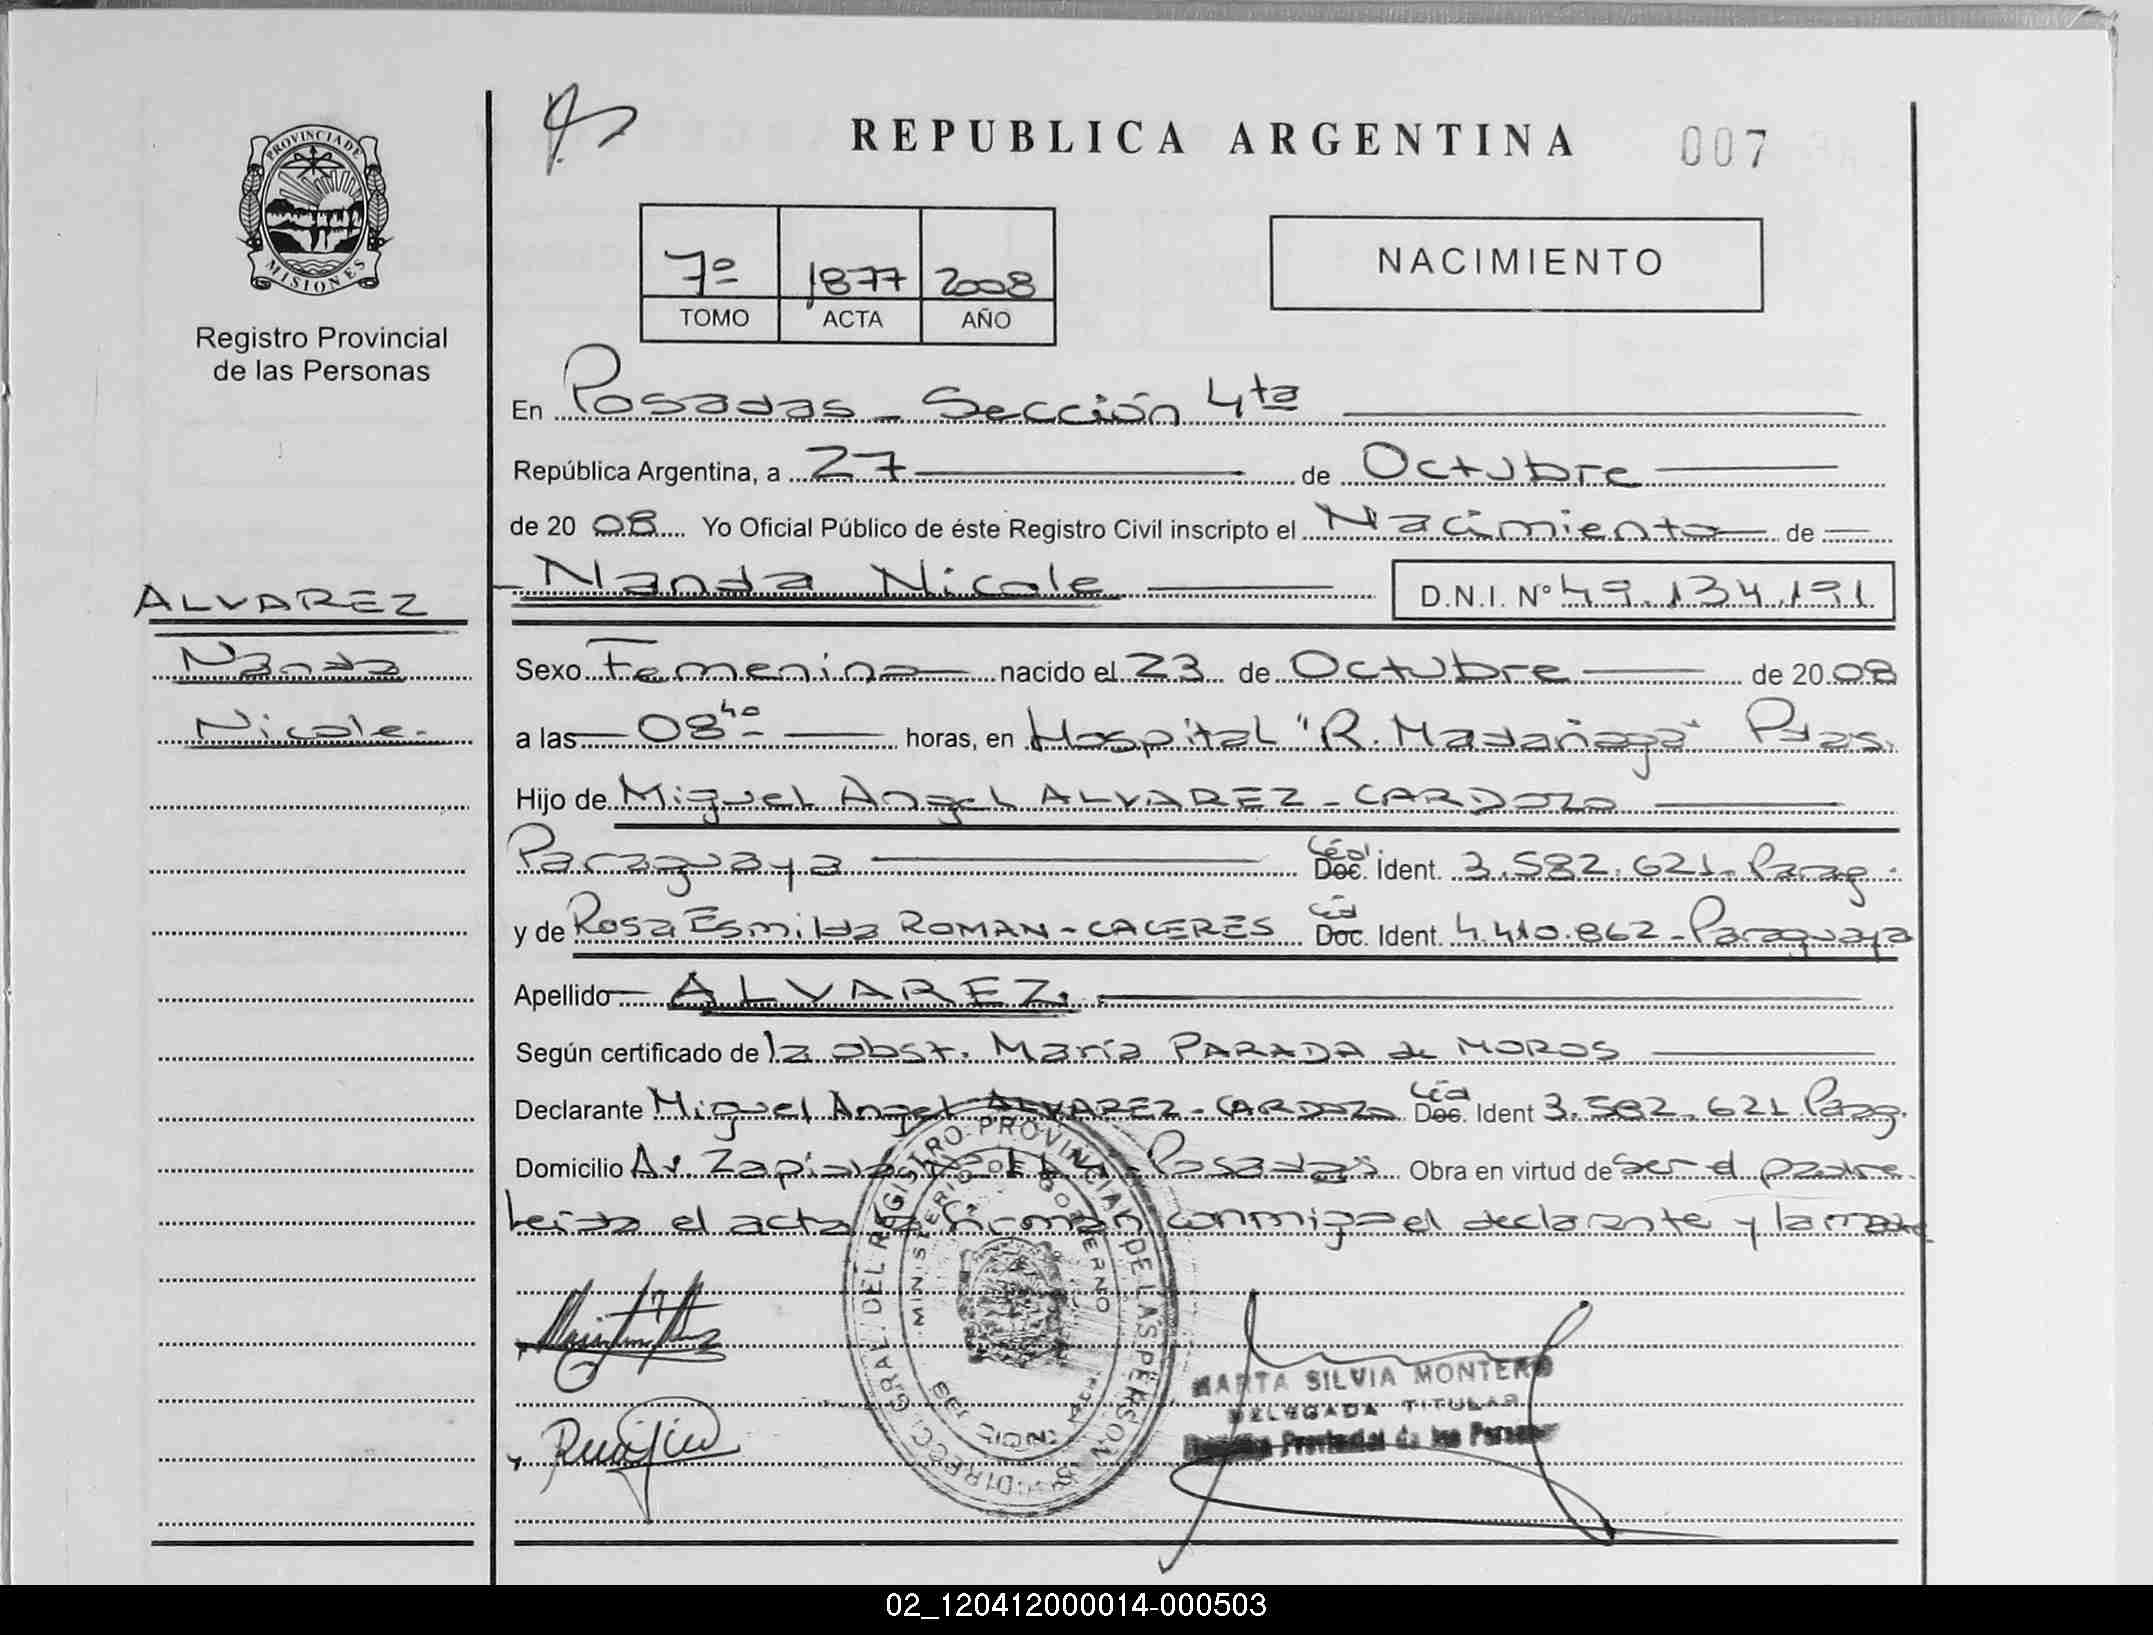 PROVINCIA DE
MISIONES
Registro Provincial
de las Personas
ALVAREZ
Nanda
Nicole.
REPUBLICA ARGENTINA 007
7º 1877 2008
TOMO ACTA AÑO
NACIMIENTO
En Posadas - Sección 4ta
República Argentina, a 27 de Octubre
de 20 08 Yo Oficial Público de éste Registro Civil inscripto el Nacimiento de
Nanda Nicole D.N.I. Nº 49.134.191
Sexo Femenino nacido el 23 de Octubre de 20 08
a las 08 40 horas, en Hospital "R. Madariaga" Pdas.
Hijo de Miguel Angel ALVAREZ - CARDOZO
Paraguaya Céd. Doc. Ident. 3.582.621 - Parag.
y de Rosa Esmilda ROMAN - CACERES Céd Doc. Ident. 4.410.862 - Paraguaya
Apellido ALVAREZ.
Según certificado de la obst. María PARADA de MOROS
Declarante Miguel Angel ALVAREZ - CARDOZO Céd Doc. Ident 3.582.621 Parag.
Domicilio Av. Posadas Obra en virtud de ser el padre.
Leida el acta la firman conmigo el declarante y la madre
DIRECC. GRAL. DEL REGISTRO PROVINCIAL DE LAS PERSONAS
MINISTERIO DE GOBIERNO
MARTA SILVIA MONTERO
DELEGADA TITULAR
Registro Provincial de las Personas
02_120412000014-000503